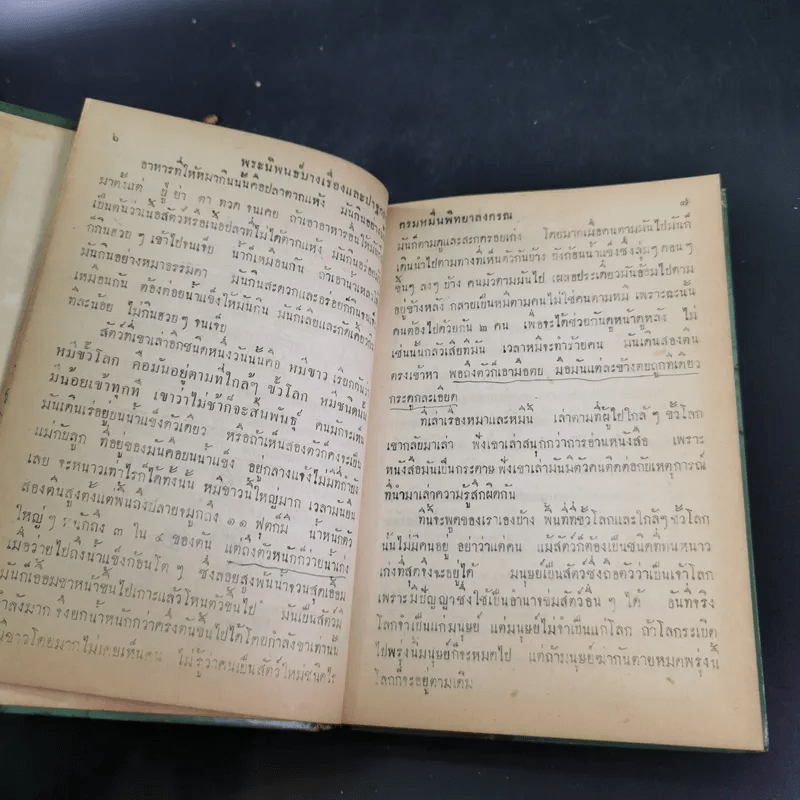 ๖
พระนิพนธ์บางเรื่องและปาฐ
อาหารที่ให้หมากินนั้นคือปลาตากแห้ง มันกินอย่าง
มาตั้งแต่ ปู่ ย่า ตา ทวด จนเคย ถ้าเอาอาหารอื่นให้มัน
เป็นต้นว่าเนื้อสัตว์หรือเนื้อปลาที่ไม่ได้ตากแห้ง มันกิน
ก็กินฮวบๆ เข้าไปจนเจ็บ น้ำก็เหมือนกัน ถ้าเอาน้ำเหลว
มันกินอย่างหมาธรรมดา มันกินสะดวกและอร่อยก็กินจน
เหมือนกัน ต้องต่อยน้ำแข็งให้มันกิน มันก็เลียและกัด
ทีละน้อย ไม่กินฮวบๆ จนเจ็บ
สัตว์ที่เขาเล่าอีกชนิดหนึ่งวันนั้นคือ หมีขาว เรียกกันว่า
หมีขั้วโลก คือมันอยู่ตามที่ใกล้ๆ ขั้วโลก หมีชนิดนั้น
มีน้อยเข้าทุกที เขาว่าไม่ช้าก็จะสูญพันธุ์ คนมักจะเห็น
มันเดินเร่อยู่บนน้ำแข็งตัวเดียว หรือถ้าเห็นสองตัวก็คงจะเป็น
แม่กับลูก ที่อยู่ของมันคือบนน้ำแข็ง อยู่กลางแจ้งไม่มีที่กำบัง
เลย จะหนาวเท่าไรก็ได้ทั้งนั้น หมีขาวนี้ใหญ่มาก เวลามันยืน
สองตีนสูงตั้งแต่พื้นถึงปลายจมูกถึง ๑๑ ฟุตก็มี น้ำหนักตัว
ใหญ่ๆ หนักถึง ๓ ใน ๔ ของตัน แต่ถึงตัวหนักก็ว่ายน้ำเก่ง
เมื่อว่ายไปถึงน้ำแข็งก้อนโตๆ ซึ่งลอยสูงพ้นน้ำจนสุดเอื้อม
มันก็เอื้อมขาหน้าขึ้นไปเกาะแล้วโหนตัวขึ้นไป มันเป็นสัตว์มี
กำลังมาก จึงยกน้ำหนักกว่าครึ่งตันขึ้นไปได้โดยกำลังขาเท่านั้น
หมีขาวโดยมากไม่เคยเห็นคน ไม่รู้ว่าคนเป็นสัตว์ใหม่ชนิดไร
๗
กรมหมื่นพิทยาลงกรณ
มันก็ตามดูและสะกดรอยเก่ง โดยมากเมื่อคนตามมันไปมันก็
เดินนำไปตามทางที่เห็นตัวกันบ้าง บังก้อนน้ำแข็งซึ่งลุ่มๆ ดอนๆ
ขึ้นๆ ลงๆ บ้าง คนมัวตามมันไป เผลอประเดี๋ยวมันอ้อมไปตาม
อยู่ข้างหลัง กลายเป็นหมีตามคนไม่ใช่คนตามหมี เพราะฉะนั้น
คนต้องไปด้วยกัน ๒ คน เพื่อจะได้ช่วยกันดูหน้าดูหลัง ไม่
เช่นนั้นกลัวเสียทีมัน เวลาหมีจะทำร้ายคน มันเดินสองตีน
ตรงเข้าหา พอถึงตัวก็เอามือตบ มือมันแต่ละข้างตบถูกทีเดียว
กระดูกละเอียด
ที่เล่าเรื่องหมาและหมีนี้ เล่าตามที่ผู้ไปใกล้ๆ ขั้วโลก
เขากลับมาเล่า ฟังเขาเล่าสนุกกว่าการอ่านหนังสือ เพราะ
หนังสือมันเป็นกระดาษ ฟังเขาเล่ามันมีตัวคนติดต่อกับเหตุการณ์
ที่นำมาเล่าความรู้สึกผิดกัน
ทีนี้จะพูดของเราเองบ้าง พื้นที่ที่ขั้วโลกและใกล้ๆ ขั้วโลก
นั้นไม่มีคนอยู่ อย่าว่าแต่คน แม้สัตว์ก็ต้องเป็นชนิดที่ทนหนาว
เก่งที่สุดจึงจะอยู่ได้ มนุษย์เป็นสัตว์ซึ่งถือตัวว่าเป็นเจ้าโลก
เพราะมีปัญญาซึ่งใช้เป็นอำนาจข่มสัตว์อื่นๆ ได้ อันที่จริง
โลกจำเป็นแก่มนุษย์ แต่มนุษย์ไม่จำเป็นแก่โลก ถ้าโลกระเบิด
ไปพรุ่งนี้มนุษย์ก็จะหมดไป แต่ถ้ามนุษย์ฆ่ากันตายหมดพรุ่งนี้
โลกก็จะอยู่ตามเดิม